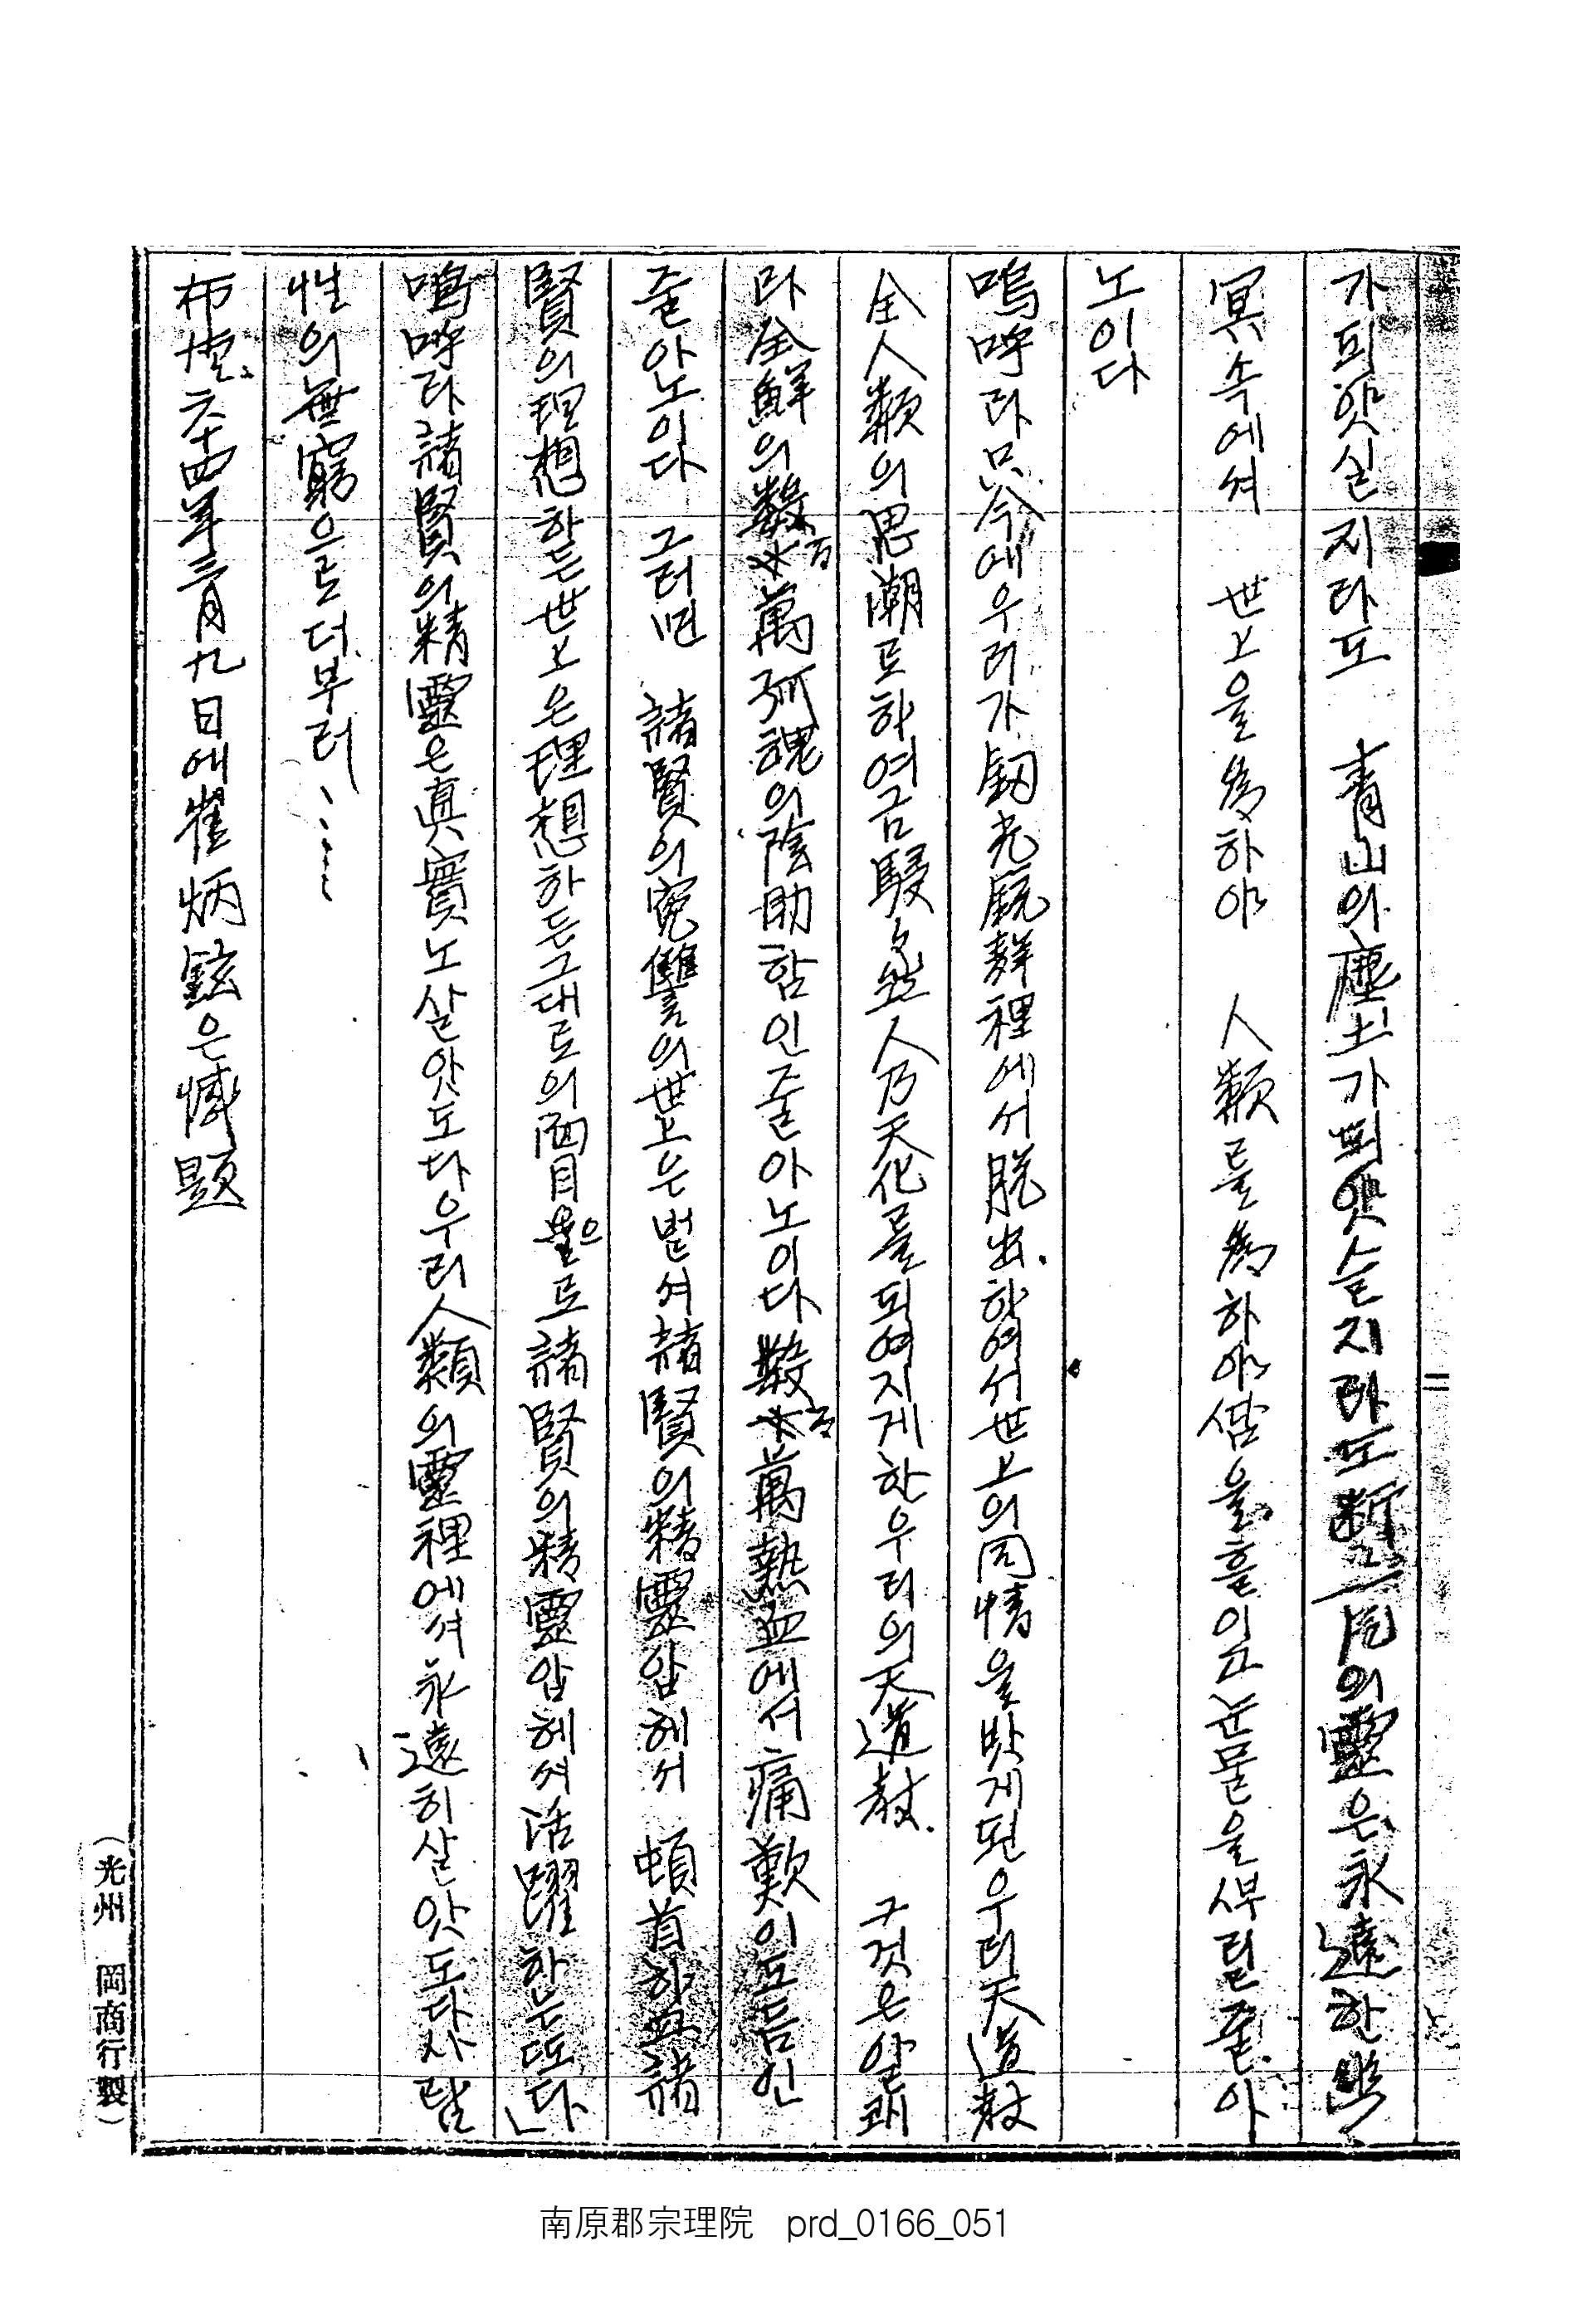 가되얏실지라도 靑山의塵土가되얏슬지라도 의靈은永遠한
冥속에셔 世上을爲하야 人類를爲하야땀을흘이고눈물을뿌릴줄아
노이다
嗚呼라只今에우리가釼光銃 裡에서脫出하여서世上의同情을밧게된우리天道敎
全人類의思潮로하여금 人乃天化를되여지게한우리의天道敎 그것은알래
라全鮮의數百萬孤魂의陰助함인줄아노이다數百萬熱血에서痛歎이도듬인
줄아노이다 그러면 諸賢의寃讐의世上는벌셔諸賢의精靈압헤서 頓首하 諸
賢의理想하든世上은理想하든그대로의面目으로諸賢의精靈압헤셔活躍하는또다」
嗚呼라諸賢의精靈은眞實노살앗도다우리人類의靈裡에셔永遠히살앗도다사람
性의無窮으로더부러……
布德六十四年三月九日에崔炳鉉은 題
(光州 岡商行製)
南原郡宗理院 prd_0166_051